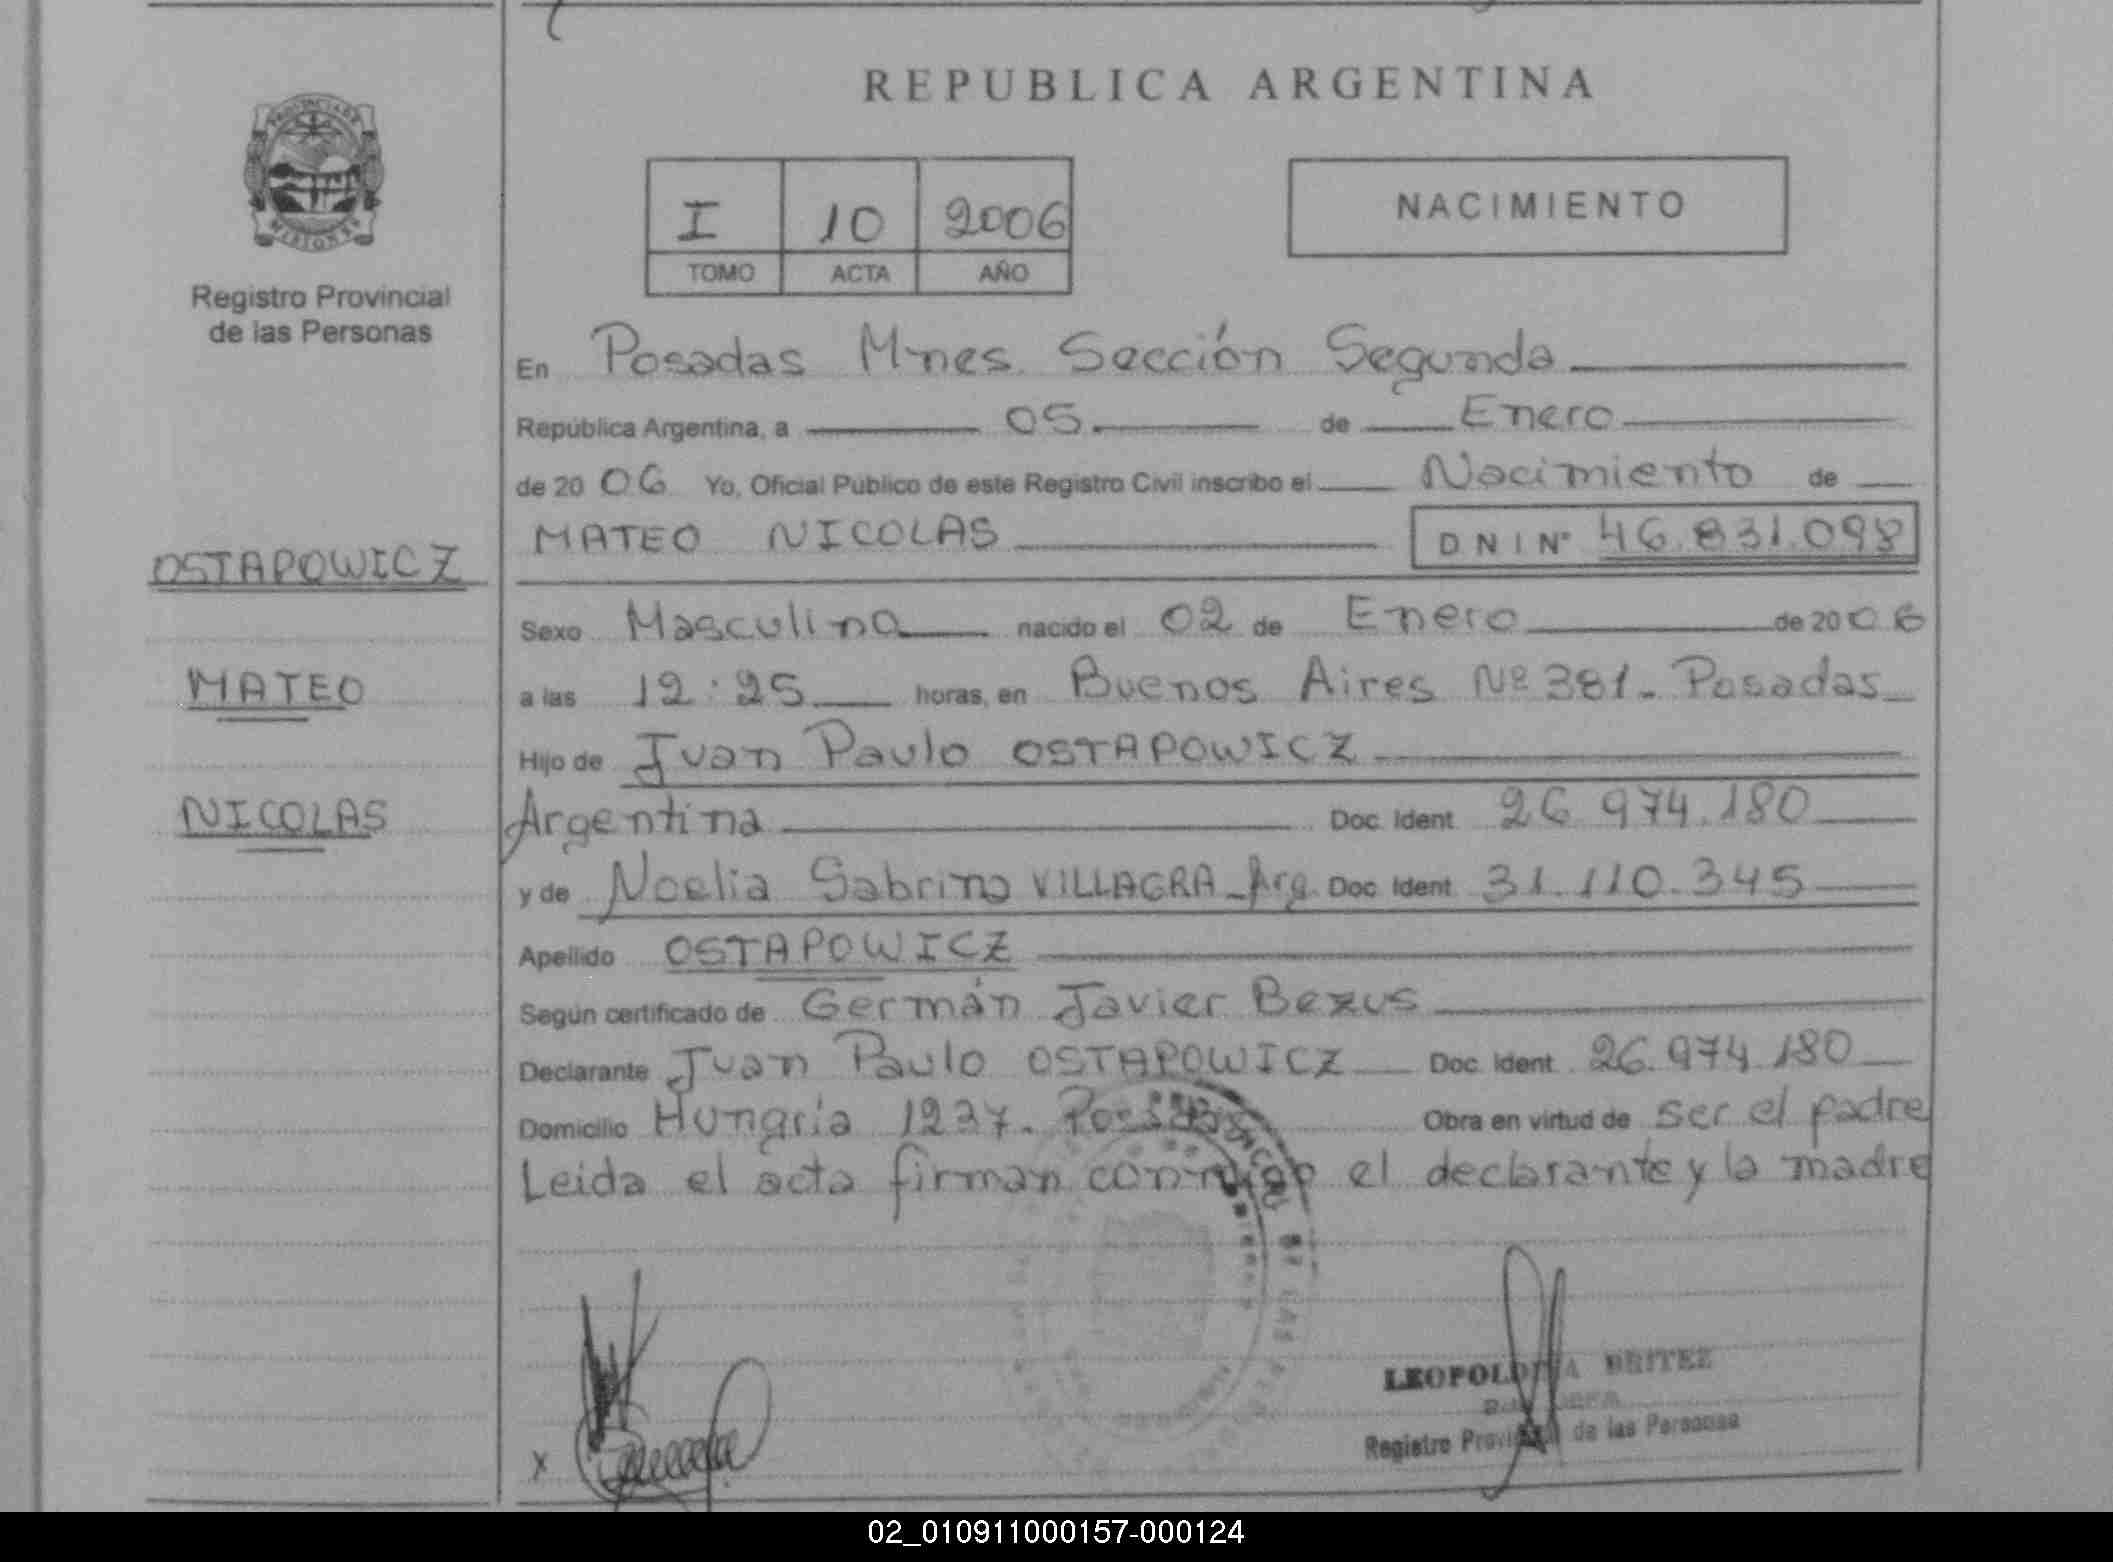 REPUBLICA ARGENTINA
PROVINCIA DE
MISIONES
Registro Provincial
de las Personas
I 10 2006
TOMO ACTA AÑO
NACIMIENTO
En Posadas Mnes. Sección Segunda
República Argentina, a 05 de Enero
de 2006 Yo, Oficial Público de este Registro Civil inscribo el Nacimiento de
OSTAPOWICZ
MATEO NICOLAS DNI Nº 46.831.098
Sexo Masculino nacido el 02 de Enero de 2006
MATEO
a las 12:25 horas, en Buenos Aires Nº 381. Posadas
Hijo de Juan Paulo OSTAPOWICZ
NICOLAS
Argentina Doc. Ident. 26.974.180
y de Noelia Sabrina VILLAGRA - Arg. Doc. Ident. 31.110.345
Apellido OSTAPOWICZ
Según certificado de Germán Javier Bezus
Declarante Juan Paulo OSTAPOWICZ Doc. Ident. 26.974.180
Domicilio Hungría 1237. Posadas Obra en virtud de ser el padre
Leida el acta firman conmigo el declarante y la madre
LEOPOLDINA BRITEZ
Registro Provincial de las Personas
X
02_010911000157-000124